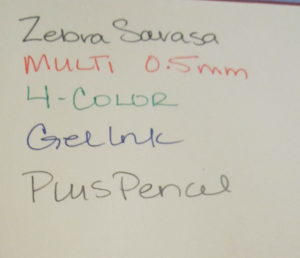 Zebra Sarasa
MULTI 0.5mm
4-COLOR
Gel Ink
Plus Pencil